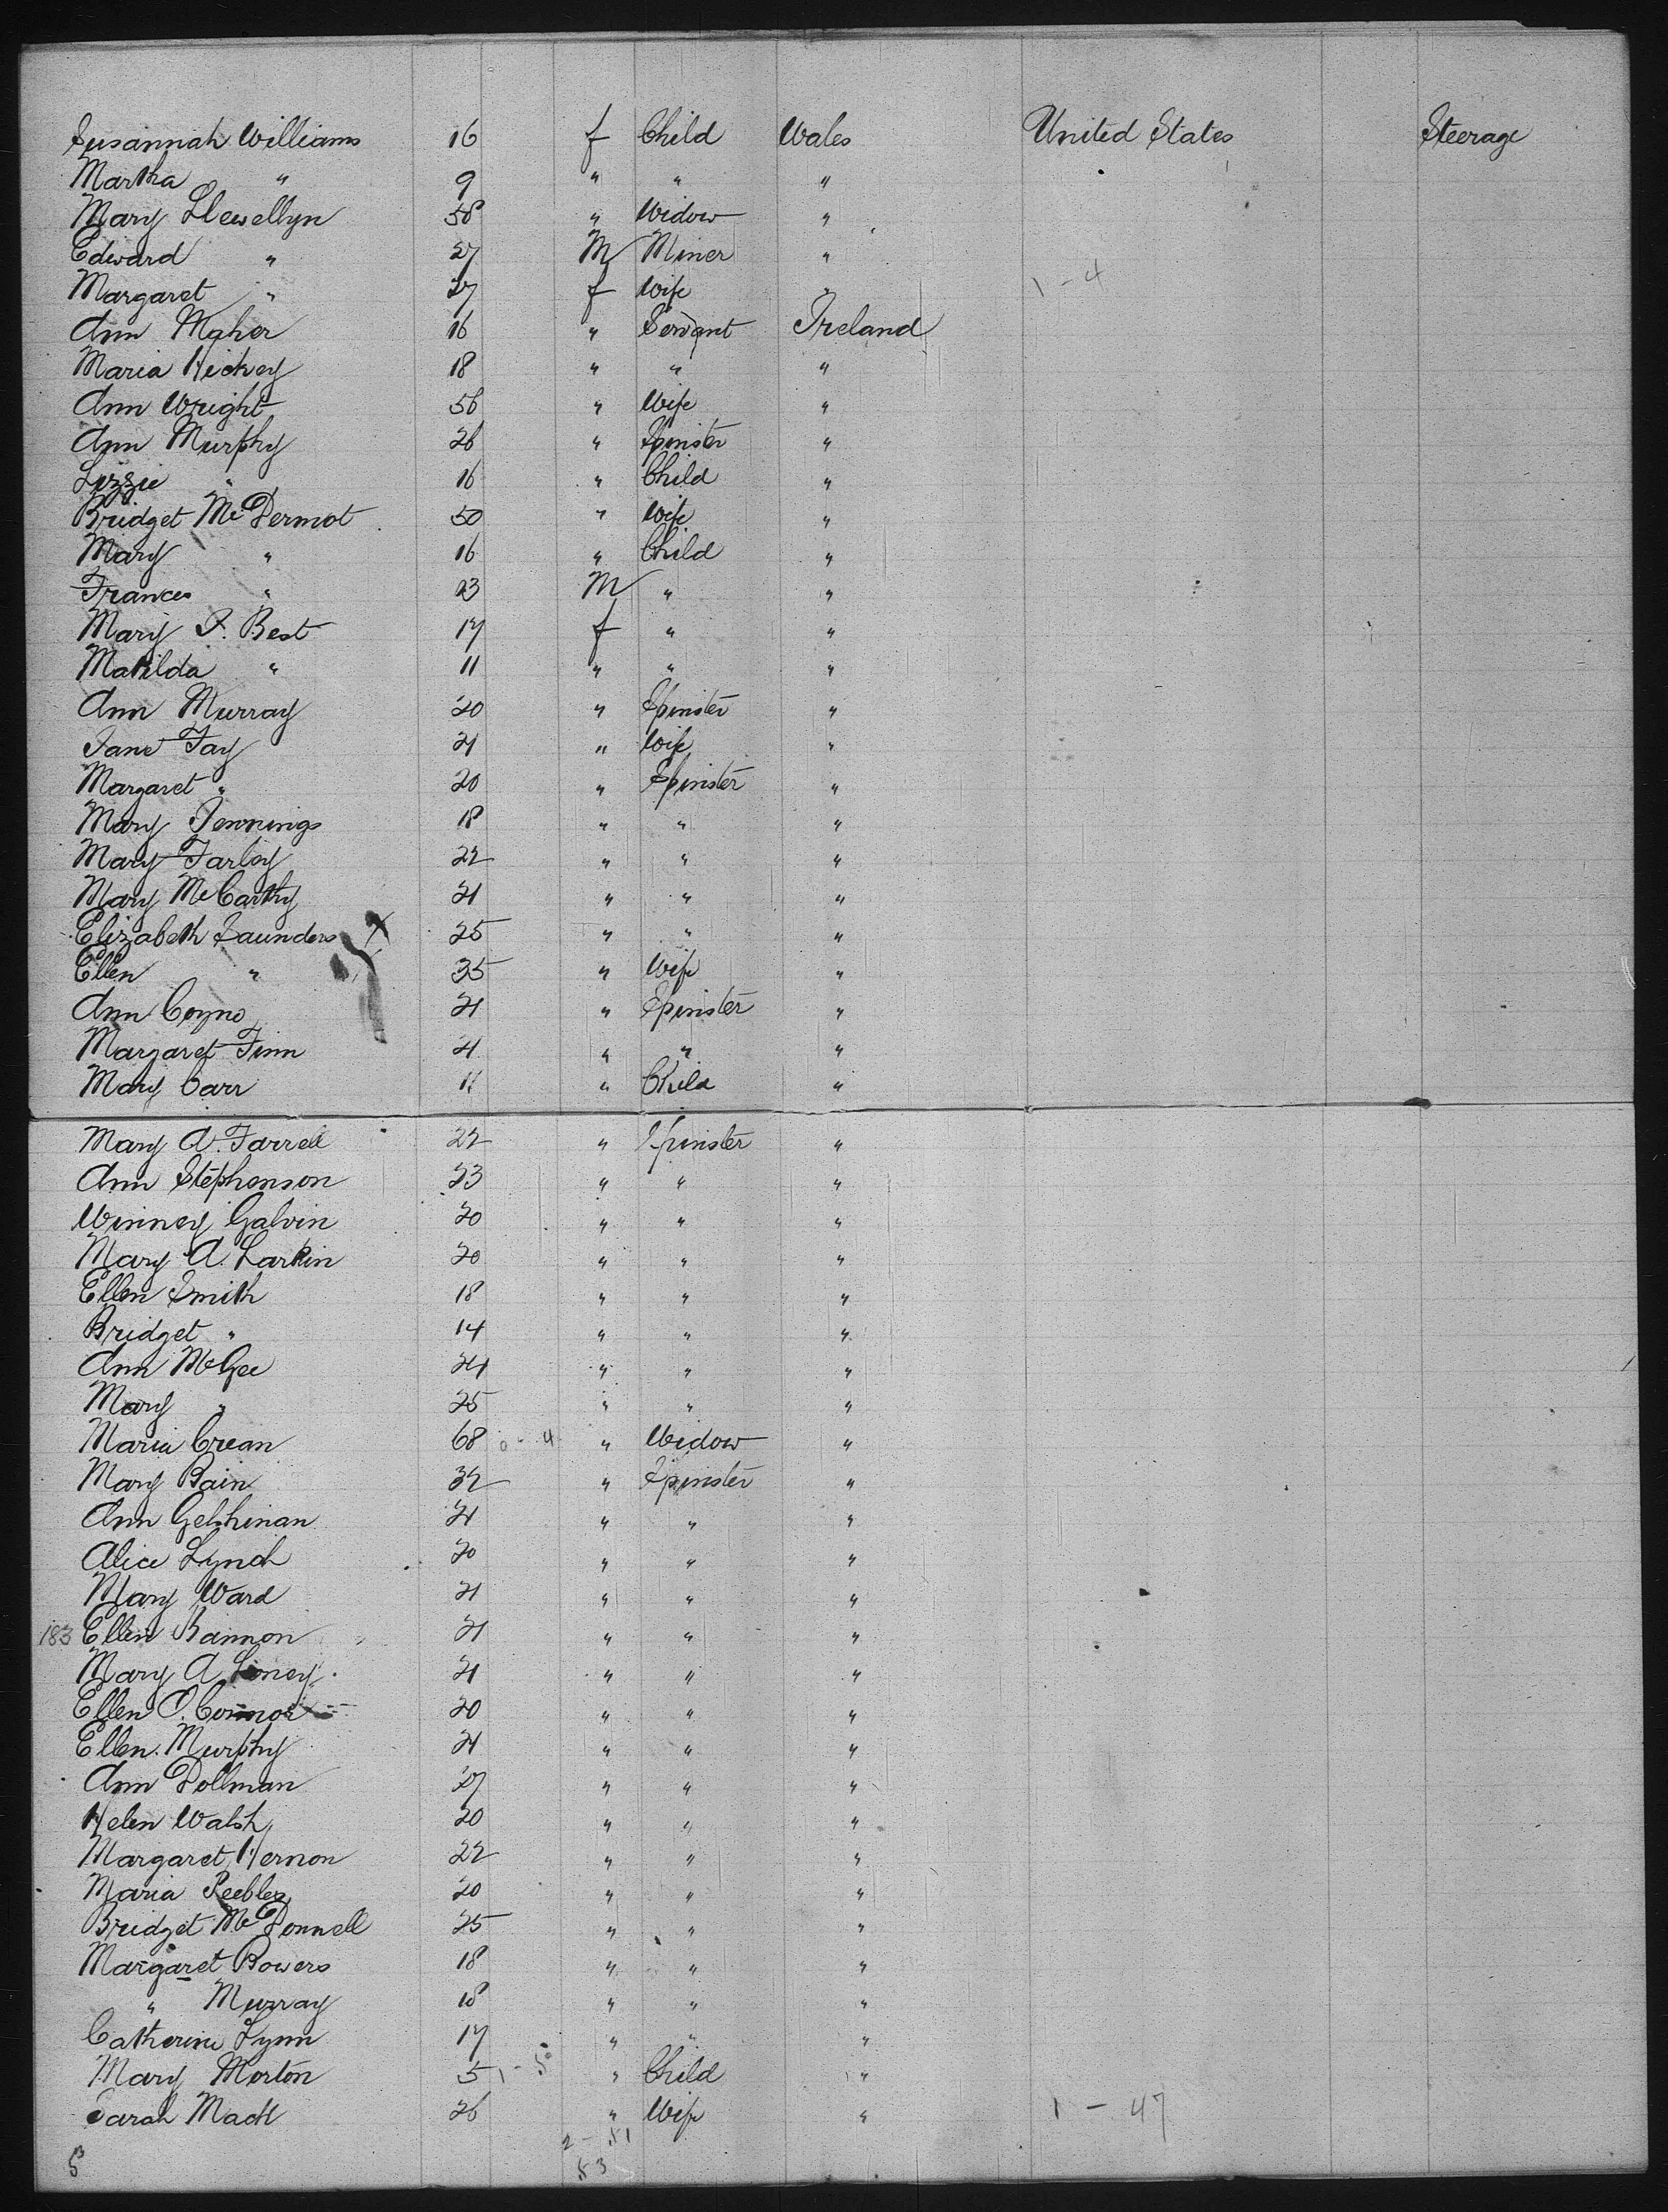 Susannah Williams 16 f Child Wales United States Steerage
Martha " 9 " " "
Mary Llewellyn 58 " Widow "
Edward " 27 M Miner "
Margaret " 27 f Wife " 1 - 4
Ann Maher 16 " Servant Ireland
Maria Hickey 18 " " "
Ann Wright 56 " Wife "
Ann Murphy 26 " Spinster "
Lizzie " 16 " Child "
Bridget McDermot 50 " Wife "
Mary " 16 " Child "
Frances " 23 M " "
Mary J. Best 17 f " "
Matilda " 11 " " "
Ann Murray 20 " Spinster "
Jane Fay 21 " Wife "
Margaret " 20 " Spinster "
Mary Jennings 18 " " "
Mary Farley 22 " " "
Mary McCarthy 21 " " "
Elizabeth Saunders X 25 " " "
Ellen " 35 " Wife "
Ann Coyne 21 " Spinster "
Margaret Finn 21 " " "
Mary Carr 11 " Child "
Mary A. Farrell 22 " Spinster "
Ann Stephenson 23 " " "
Winney Galvin 20 " " "
Mary A. Larkin 20 " " "
Ellen Smith 18 " " "
Bridget " 14 " " "
Ann McGee 24 " " "
Mary " 25 " " "
Maria Crean 68 0 - 4 " Widow "
Mary Bain 32 " Spinster "
Ann 21 " " "
Alice Lynch 20 " " "
Mary Ward 21 " " "
183 Ellen Bannon 21 " " "
Mary A 21 " " "
Ellen O.Connor 20 " " "
Ellen Murphy 21 " " "
Ann Dollman 27 " " "
Helen Walsh 20 " " "
Margaret Hernon 22 " " "
Maria Peebles 20 " " "
Bridget McDonnell 25 " " "
Margaret Bowers 18 " " "
" Murray 18 " " "
Catherine Lynn 17 " " "
Mary Morton 5 1 - 5 " Child "
Sarah 26 " Wife " 1 - 47
2 - 51
5 53